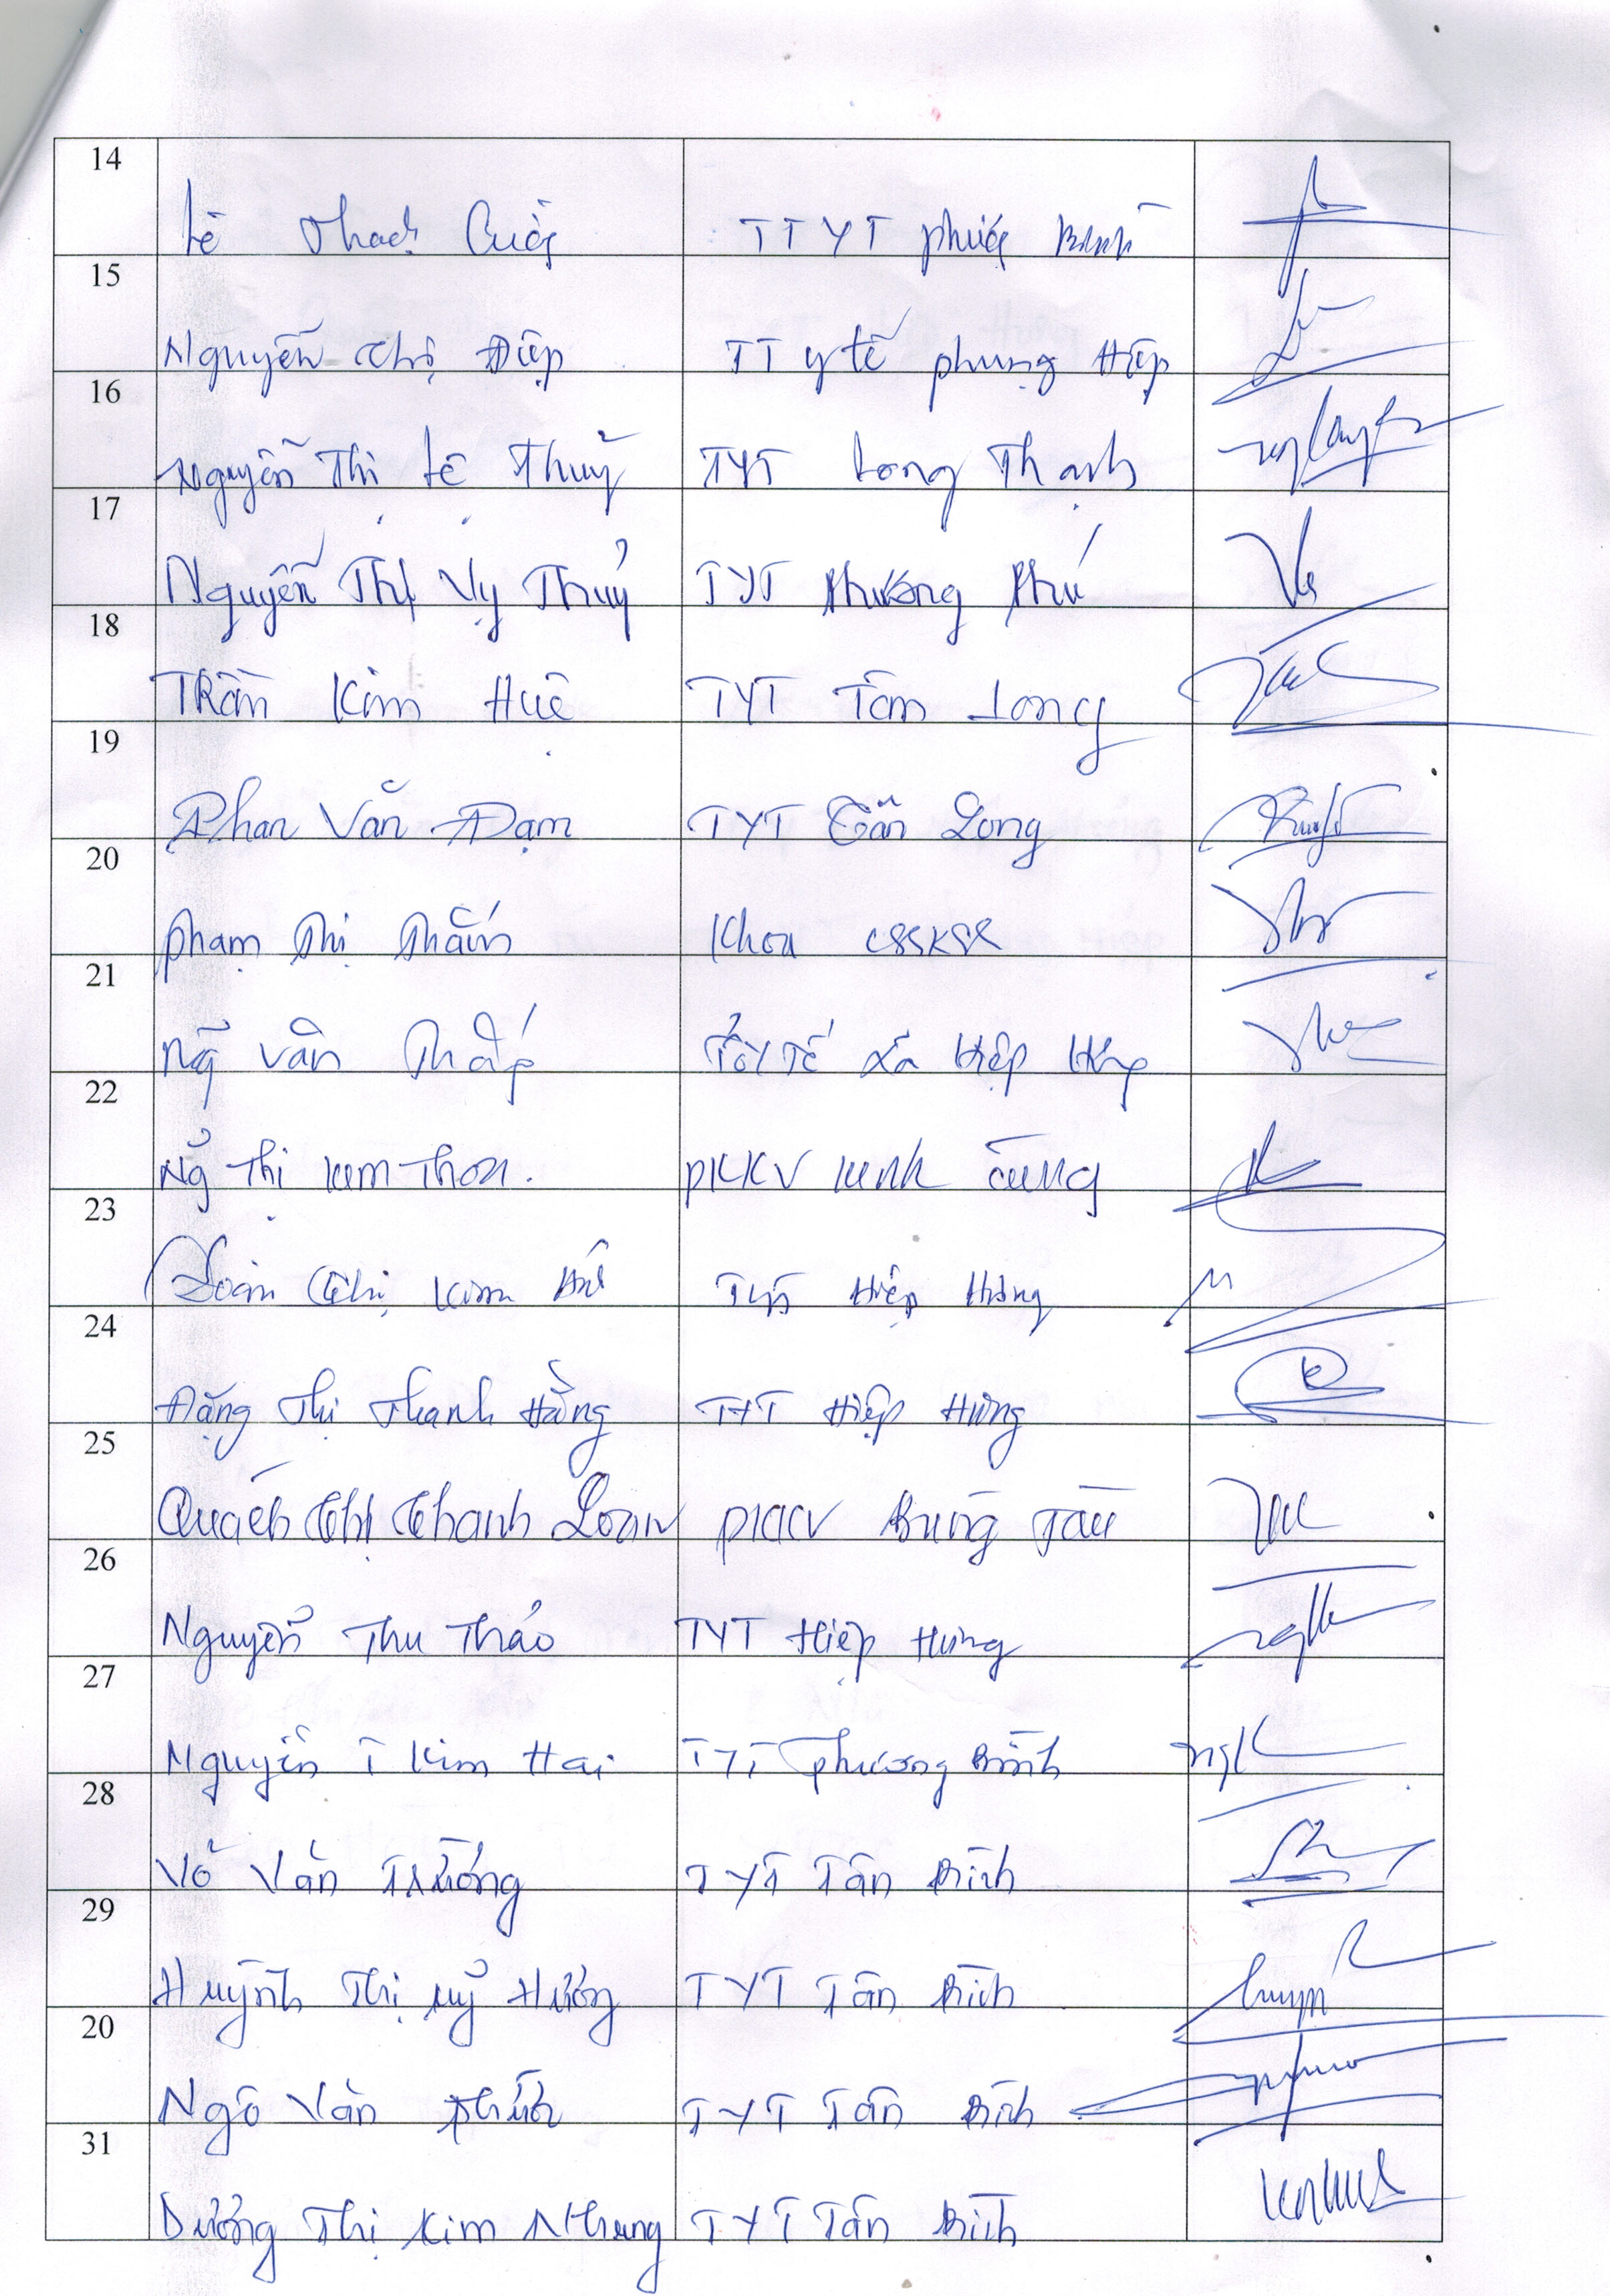 14
Lê Thach TTYT Phước Bình
15
Nguyễn Thị Điệp TT y tế phụng Hiệp
16
Nguyễn Thị Lê Thuỷ TYT Long Thạnh
17
Nguyễn Thị Vy Thuỷ TYT Phương Phú
18
Trần Kim Huệ TYT Tân Long
19
Phan Văn Đạm TYT Tân Long
20
Phạm Thị Thắm Khoa CSSKSS
21
Ng̃ Văn Thắp Tổ Y Tế Xã Hiệp Hưng
22
Ng̃ Thị Kim Thoa. PKKV Kinh Cùng
23
Đoàn Thị Kim TYT Hiệp Hưng
24
Đặng Thị Thanh Hằng TYT Hiệp Hưng
25
Quách Thị Thanh Loan PKKV Búng Tàu
26
Nguyễn Thu Thảo TYT Hiệp Hưng
27
Nguyễn T Kim Hai TYT Phương Bình
28
Võ Văn Trường TYT Tân Bình
29
Huỳnh Thị Mỹ Hương TYT Tân Bình
20
Ngô Văn TYT Tân Bình
31
Dương Thị Kim Nhung TYT Tân Bình